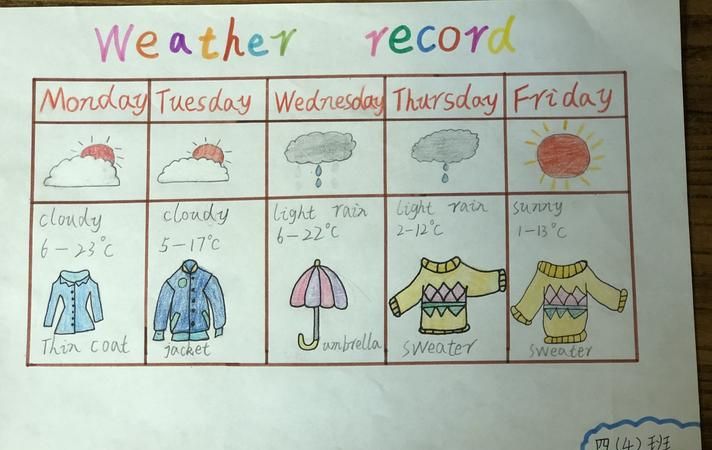 Weather record
Monday Tuesday Wednesday Thursday Friday
cloudy cloudy light rain light rain sunny
6-23°C 5-17°C 6-22°C 2-12°C 1-13°C
Thin coat jacket umbrella sweater sweater
四(4)班